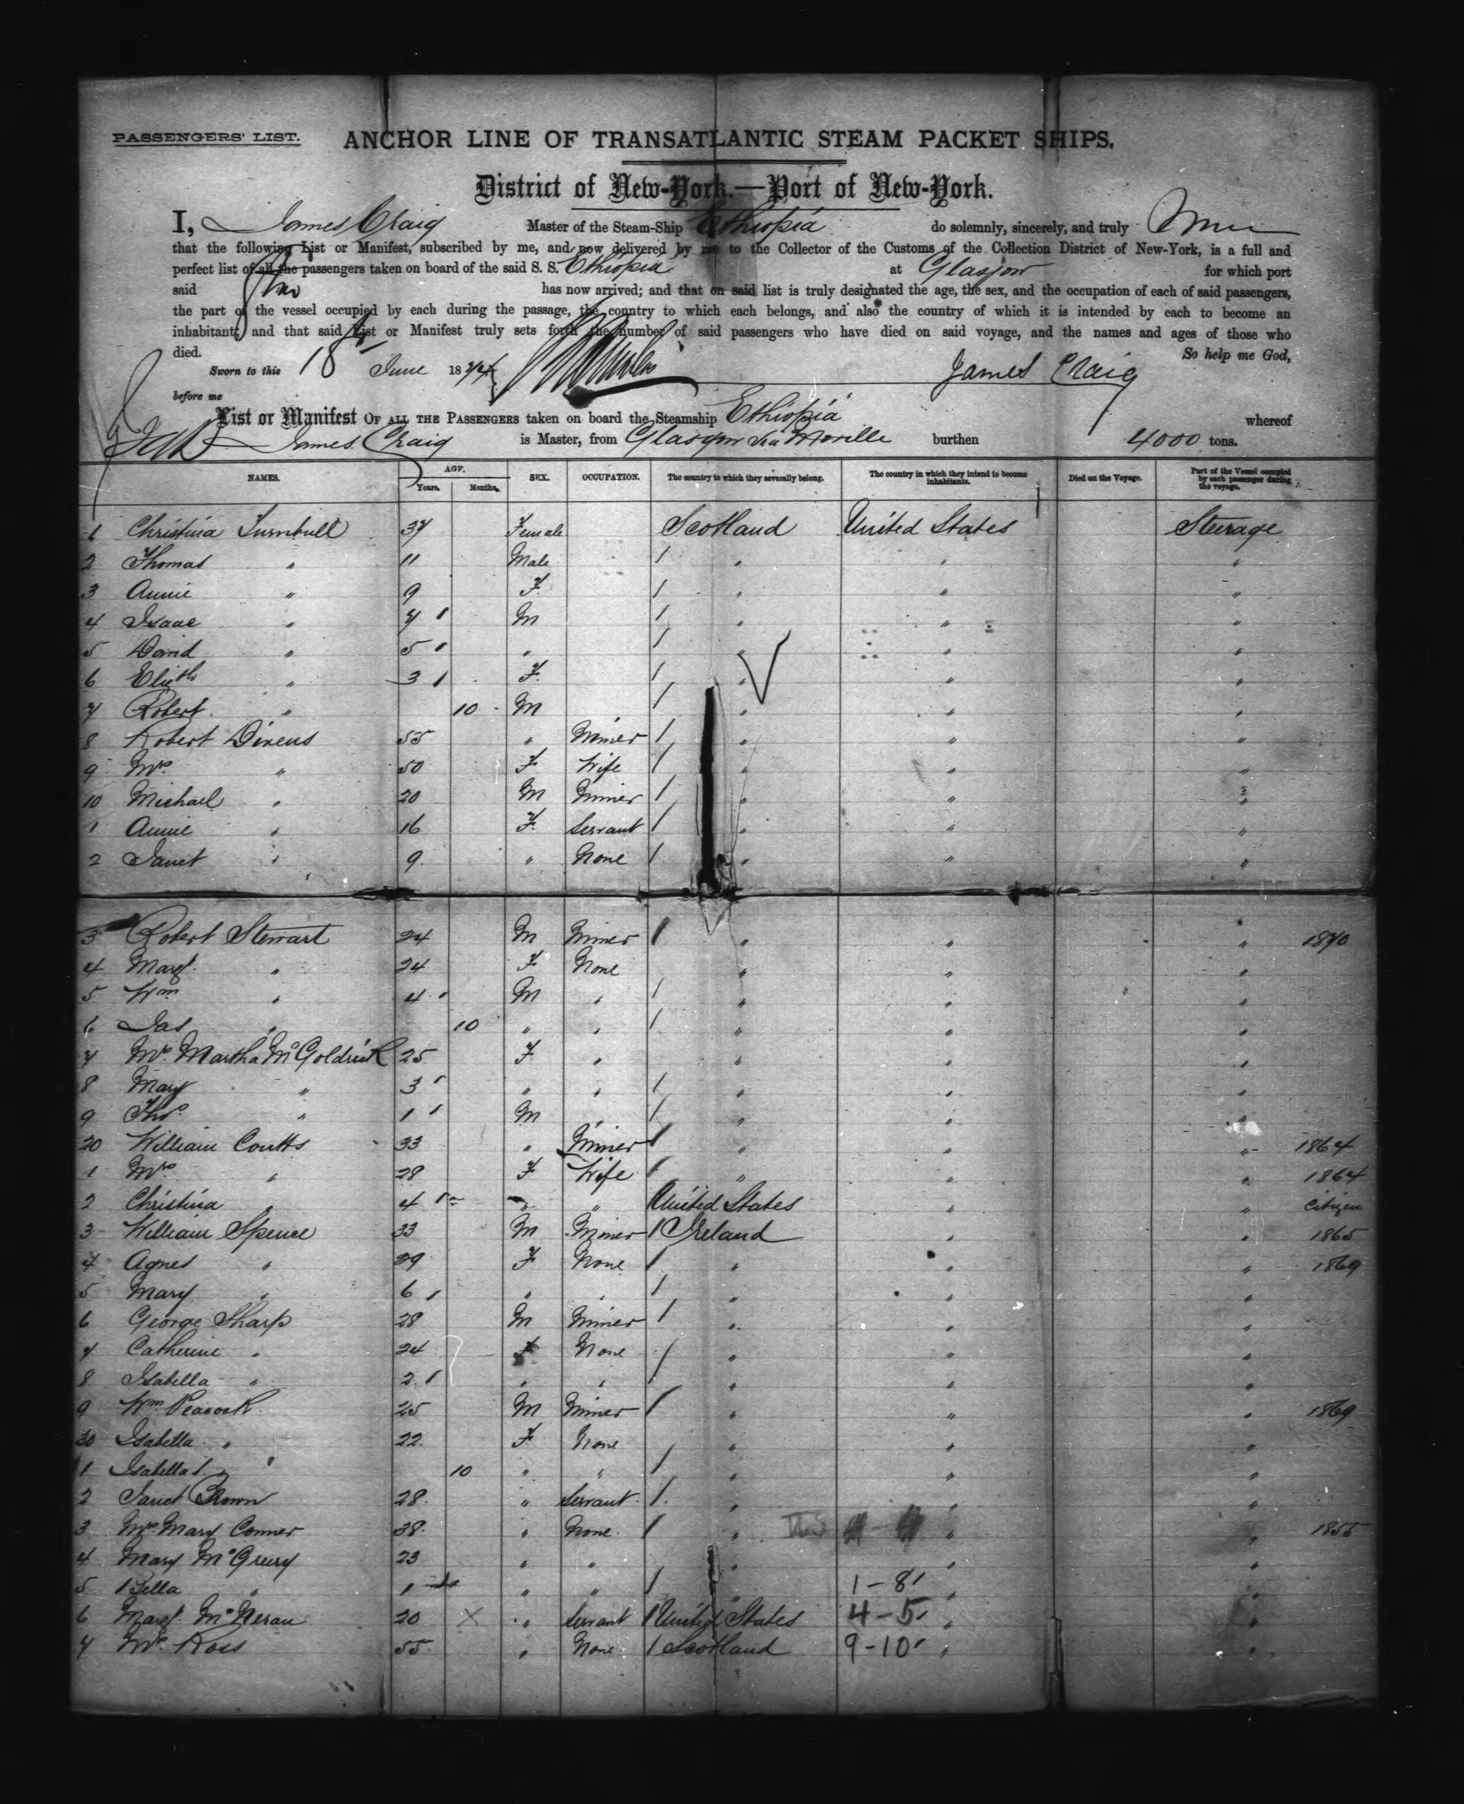 PASSENGERS' LIST. ANCHOR LINE OF TRANSATLANTIC STEAM PACKET SHIPS.
District of New-York.—Port of New-York.
I, James Craig Master of the Steam-Ship Ethiopia do solemnly, sincerely, and truly
that the following List or Manifest, subscribed by me, and now delivered by me to the Collector of the Customs of the Collection District of New-York, is a full and
perfect list of all the passengers taken on board of the said S. S. Ethiopia at Glasgow for which port
said has now arrived; and that on said list is truly designated the age, the sex, and the occupation of each of said passengers,
the part of the vessel occupied by each during the passage, the country to which each belongs, and also the country of which it is intended by each to become an
inhabitant; and that said List or Manifest truly sets forth the number of said passengers who have died on said voyage, and the names and ages of those who
died. So help me God,
Sworn to this 18 June 1874 James Craig
before me
List or Manifest OF ALL THE PASSENGERS taken on board the Steamship Ethiopia whereof
James Craig is Master, from Glasgow via Moville burthen 4000 tons.
NAMES. AGE. Years. Months. SEX. OCCUPATION. The country to which they severally belong. The country in which they intend to become inhabitants. Died on the Voyage. Part of the Vessel occupied by each passenger during the voyage.
1 Christina Turnbull 37 Female Scotland United States Steerage
2 Thomas " 11 Male / " " "
3 Annie " 9 F / " " "
4 Isaac " 7 M / " " "
5 David " 5 " / " " "
6 Elizth " 3 F / " " "
7 Robert " 10 M / " " "
8 Robert Divens 55 " Miner / " " "
9 Mrs " 50 F Wife / " " "
10 Michael " 20 M Miner / " " "
1 Annie " 16 F Servant / " " "
2 Janet " 9 " None / " " "
3 Robert Stewart 24 M Miner / " " " 1870
4 Margt " 24 F None " " "
5 Wm " 4 M " / " " "
6 Jas " 10 " " / " " "
7 Mrs Martha McGoldrick 25 F " " " "
8 Mary " 3 " " / " " "
9 Thos " 1 M " / " " "
20 William Coutts 33 " Miner / " " " 1864
1 Mrs " 28 F Wife / " " " 1864
2 Christina " 4 " " United States " " Citizen
3 William Spence 33 M Miner / Ireland " " 1865
4 Agnes " 29 F None / " " " 1869
5 Mary " 6 " " / " " "
6 George Sharp 28 M Miner / " " "
7 Catherine " 24 F None / " " "
8 Isabella " 2 " " / " " "
9 Wm Peacock 25 M Miner / " " " 1869
30 Isabella " 22 F None " " "
1 Isabella " 10 " " / " " "
2 Janet Brown 28 " Servant / " " "
3 Mrs Mary Conner 38 " None / " " " 1855
4 Mary McGreevy 23 " " " " "
5 Bella " 1 " " / " 1-8 " "
6 Margt McNeran 20 X " Servant / United States 4-5 " "
7 Mrs Ross 55 " None / Scotland 9-10 " "